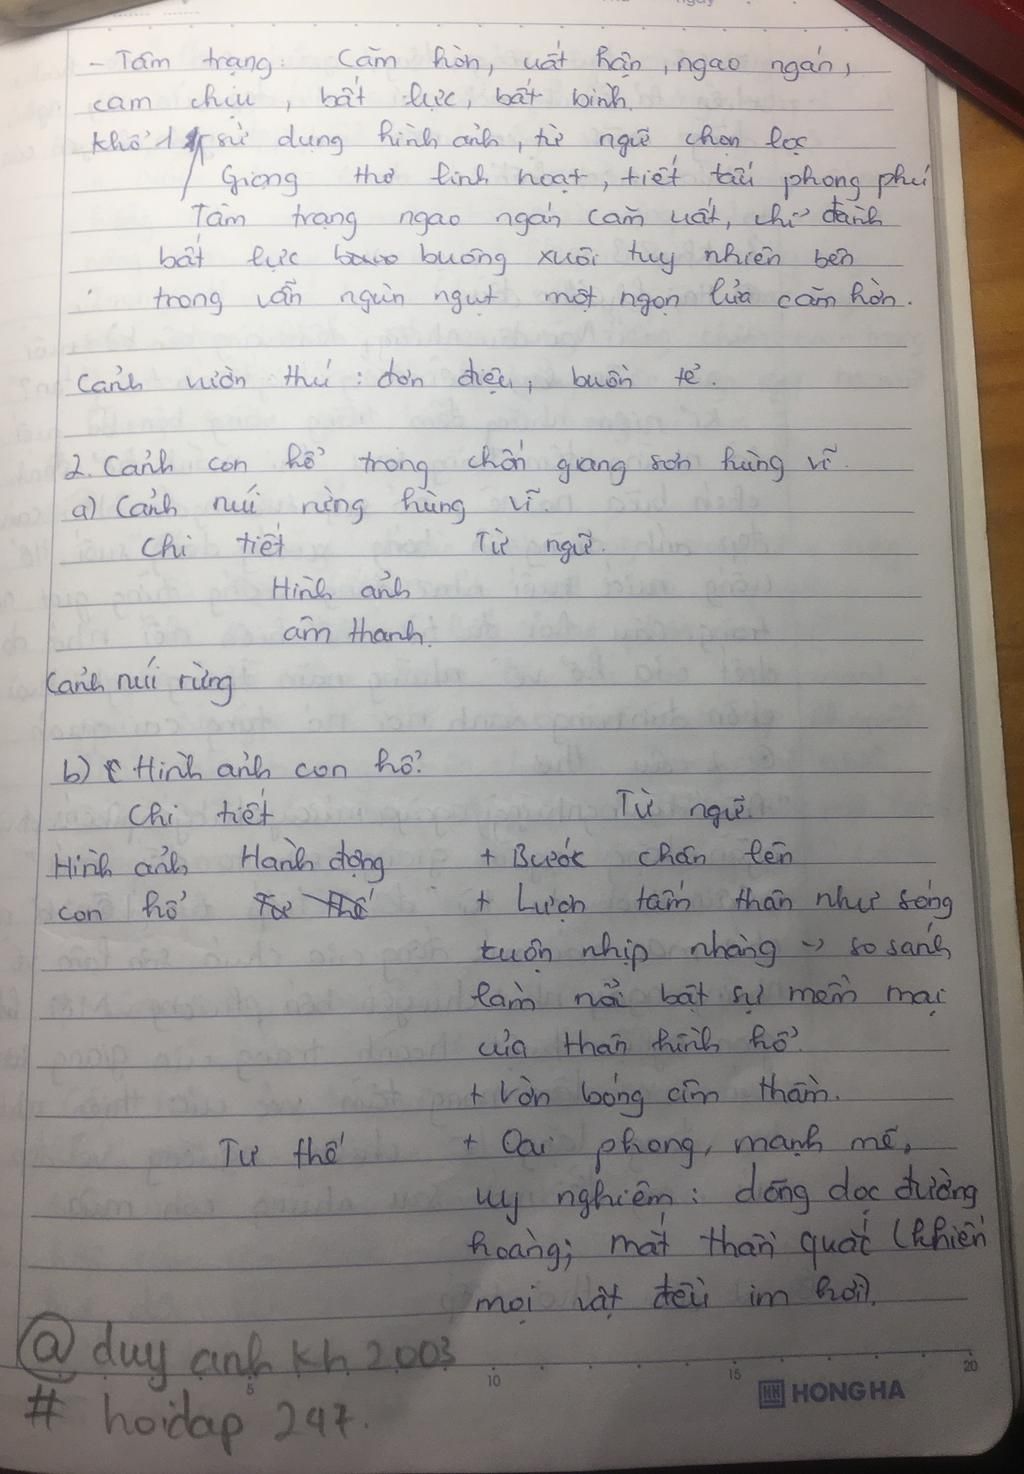 - Tâm trạng: Căm hờn, uất hận, ngao ngán,
cam chịu, bất lực, bất bình.
khổ 1 sử dụng hình ảnh, từ ngữ chọn lọc
Giọng thơ linh hoạt, tiết tấu phong phú
Tâm trạng ngao ngán căm uất, chỉ đành
bất lực buông xuôi tuy nhiên bên
trong vẫn ngùn ngụt một ngọn lửa căm hờn.
Cảnh vườn thú: đơn điệu, buồn tẻ.
2. Cảnh con hổ trong chốn giang sơn hùng vĩ.
a) Cảnh núi rừng hùng vĩ.
Chi tiết Từ ngữ.
Hình ảnh
âm thanh.
Cảnh núi rừng
b) Hình ảnh con hổ.
Chi tiết Từ ngữ.
Hình ảnh Hành động + Bước chân lên
con hổ Tư thế + Lượn tấm thân như sóng
cuộn nhịp nhàng -> so sánh
làm nổi bật sự mềm mại
của thân hình hổ.
+ Vờn bóng âm thầm.
Tư thế + Oai phong, mạnh mẽ,
uy nghiêm: dõng dạc đường
hoàng; mắt thần quắc (khiến
mọi vật đều im hơi).
@ duy anh kh 2003
# hoidap 247.
5 10 15 20
HONG HA